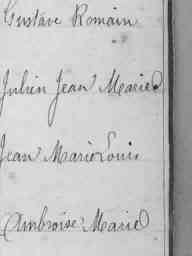 Gustave Romain
Julien Jean Marie
Jean Marie Louis
Ambroise Marie